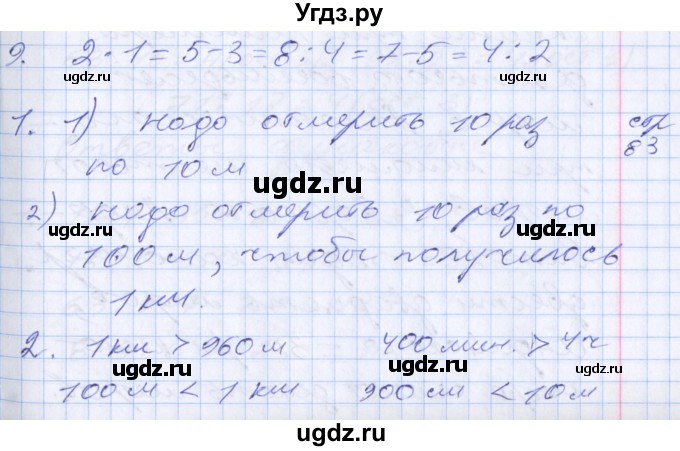 Угдз.ру
9. 2 · 1 = 5 - 3 = 8 : 4 = 7 - 5 = 4 : 2
ugdz.ru ugdz.ru ugdz.ru
1. 1) Надо отмерить 10 раз стр 83
по 10 м
ugdz.ru
2) Надо отмерить 10 раз по
ugdz.ru ugdz.ru
100 м, чтобы получилось
1 км.
2. 1 км > 960 м 400 мин. > 4 ч
ugdz.ru ugdz.ru
100 м < 1 км 900 см < 10 м
ugdz.ru